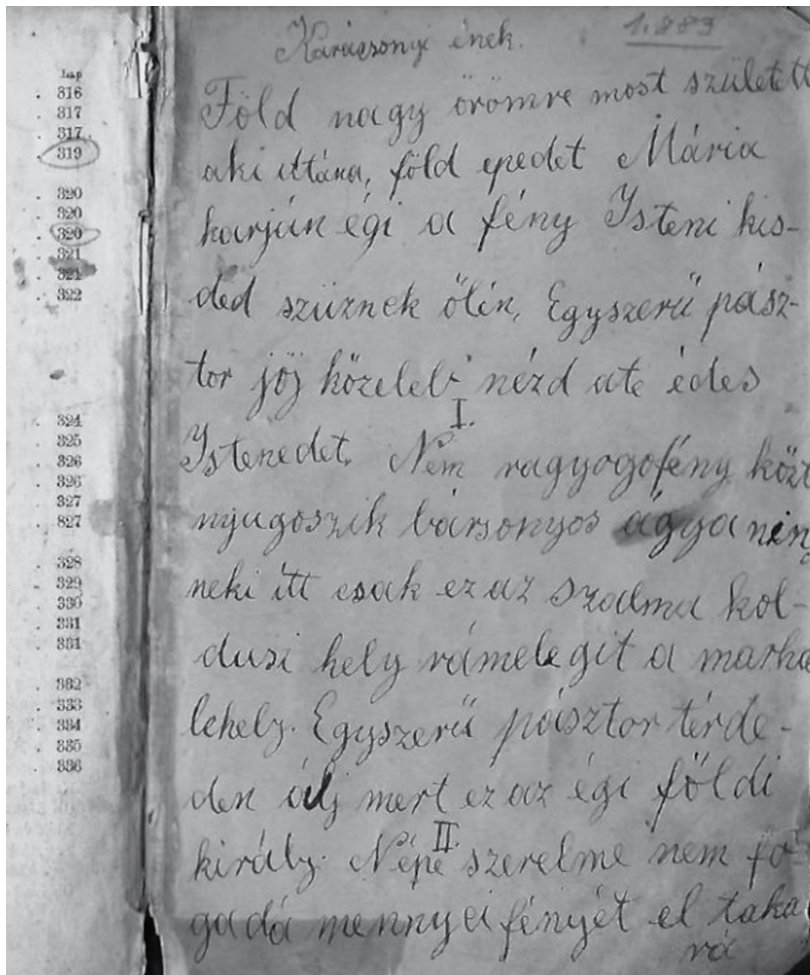 Karácsonyi ének.
1.883
Lap
. 316
. 317
. 317
. 319
. 320
. 320
. 320
. 321
. 321
. 322
. 324
. 325
. 326
. 326
. 327
. 327
. 328
. 329
. 330
. 331
. 331
. 332
. 333
. 334
. 335
. 336
Föld nagy örömre most született
aki uttána, föld epedet Mária
karján égi a fény Isteni kis-
ded szüznek ölén, Egyszerű pász-
tor jöj közeleb nézd ate édes
I.
Istenedet. Nem ragyogofény közt
nyugoszik bársonyos ágya nin
neki itt csak ez az szalma kol-
dusi hely rámelegit a marha
lehely. Egyszerű pásztor térde-
den álj mert ez az égi földi
II.
király. Népe szerelme nem fo-
gadá mennyei fényét el taka
rá